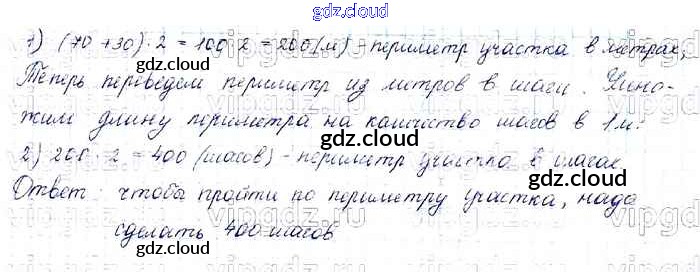 gdz.cloud
1) (70 + 30) · 2 = 100 · 2 = 200 (м) - периметр участка в метрах,
gdz.cloud
Теперь переведем периметр из метров в шаги. Умно-
жим длину периметра на количество шагов в 1 м:
gdz.cloud
2) 200 · 2 = 400 (шагов) - периметр участка в шагах
gdz.cloud gdz.cloud
Ответ: чтобы пройти по периметру участка, надо
сделать 400 шагов
gdz.cloud gdz.cloud